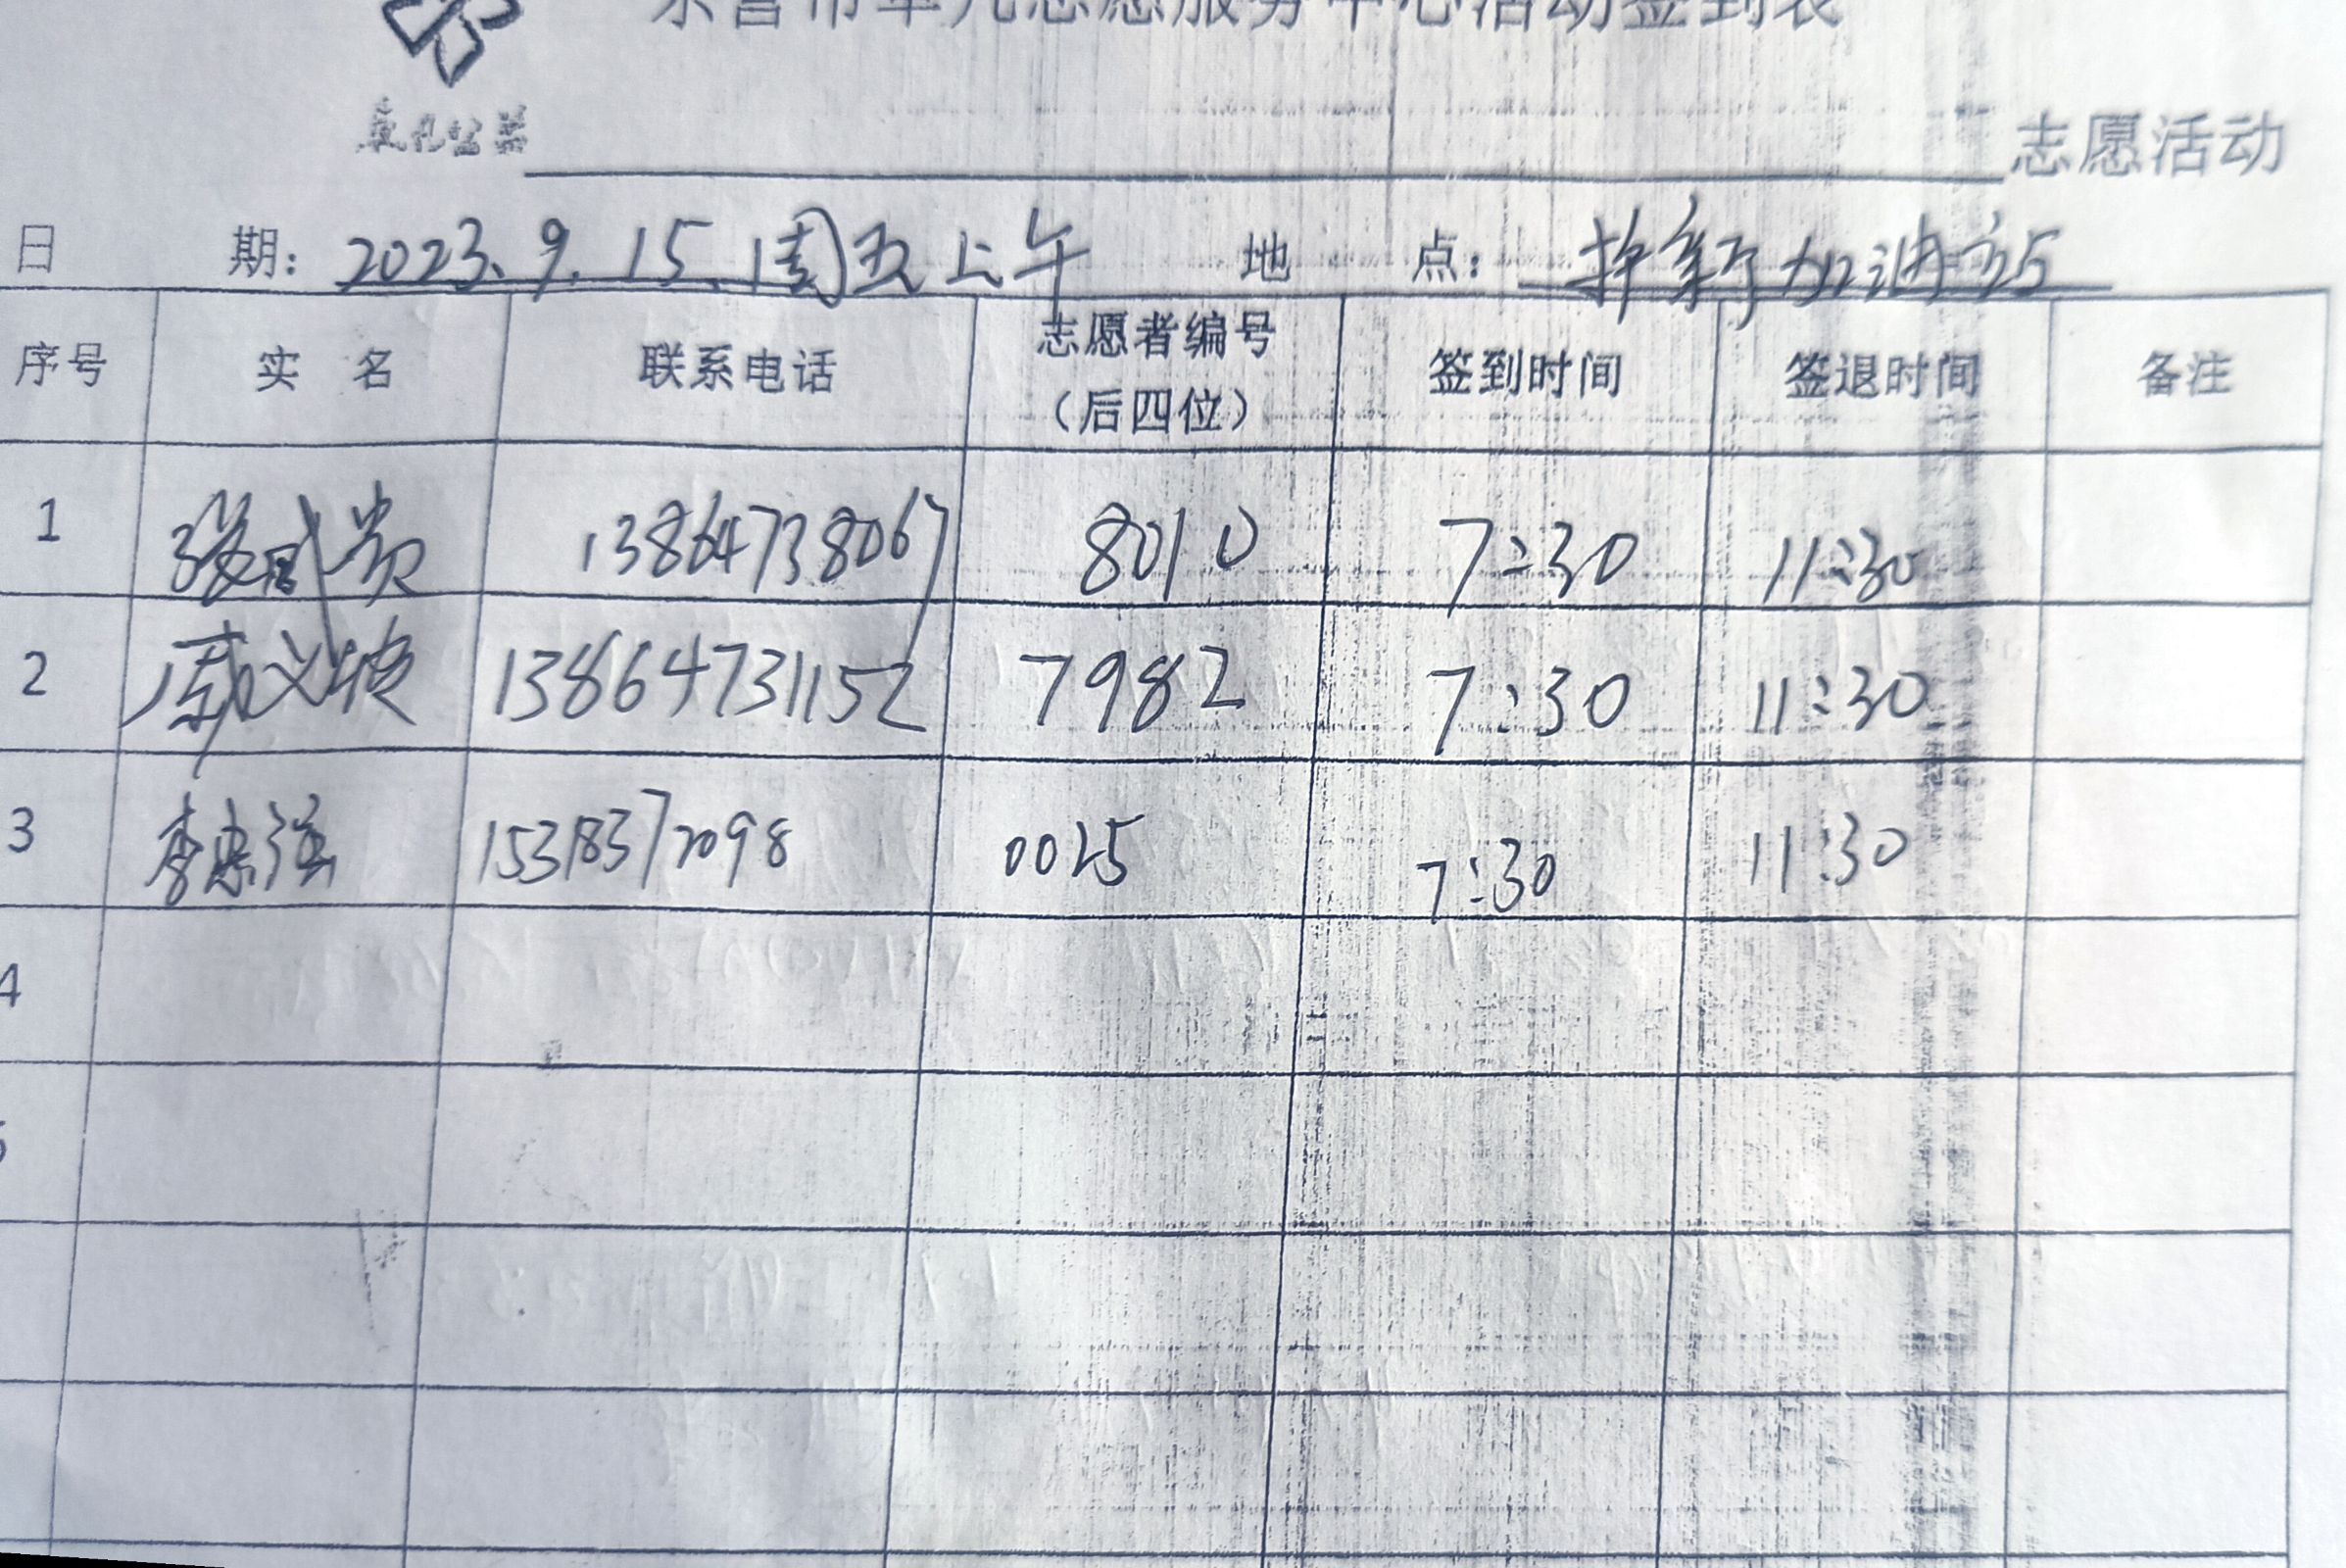 东营市草凡志愿服务中心活动签到表
志愿活动
日 期: 2023.9.15.周五上午 地 点: 护新加油站
序号 实 名 联系电话 志愿者编号(后四位) 签到时间 签退时间 备注
1 张 贵 13864738067 8010 7:30 11:30
2 13864731152 7982 7:30 11:30
3 李忠强 15318372098 0025 7:30 11:30
4
5